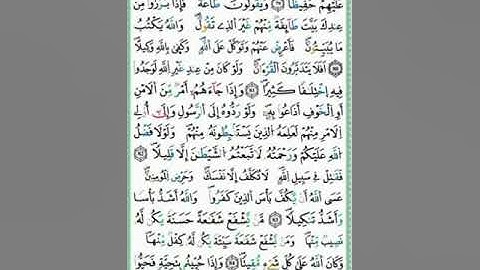 عَلَيْهِمْ حَفِيظًا ۞ وَيَقُولُونَ طَاعَةٌ فَإِذَا بَرَزُوا مِنْ
عِندِكَ بَيَّتَ طَائِفَةٌ مِّنْهُمْ غَيْرَ الَّذِي تَقُولُ وَاللَّهُ يَكْتُبُ
مَا يُبَيِّتُونَ فَأَعْرِضْ عَنْهُمْ وَتَوَكَّلْ عَلَى اللَّهِ وَكَفَىٰ بِاللَّهِ وَكِيلًا
أَفَلَا يَتَدَبَّرُونَ الْقُرْءَانَ وَلَوْ كَانَ مِنْ عِندِ غَيْرِ اللَّهِ لَوَجَدُوا
فِيهِ اخْتِلَافًا كَثِيرًا وَإِذَا جَاءَهُمْ أَمْرٌ مِّنَ الْأَمْنِ
أَوِ الْخَوْفِ أَذَاعُوا بِهِ وَلَوْ رَدُّوهُ إِلَى الرَّسُولِ وَإِلَىٰ أُولِي
الْأَمْرِ مِنْهُمْ لَعَلِمَهُ الَّذِينَ يَسْتَنبِطُونَهُ مِنْهُمْ وَلَوْلَا فَضْلُ
اللَّهِ عَلَيْكُمْ وَرَحْمَتُهُ لَاتَّبَعْتُمُ الشَّيْطَانَ إِلَّا قَلِيلًا
فَقَاتِلْ فِي سَبِيلِ اللَّهِ لَا تُكَلَّفُ إِلَّا نَفْسَكَ وَحَرِّضِ الْمُومِنِينَ
عَسَى اللَّهُ أَنْ يَّكُفَّ بَأْسَ الَّذِينَ كَفَرُوا وَاللَّهُ أَشَدُّ بَأْسًا
وَأَشَدُّ تَنكِيلًا مَّنْ يَّشْفَعْ شَفَاعَةً حَسَنَةً يَكُن لَّهُ
نَصِيبٌ مِّنْهَا وَمَنْ يَّشْفَعْ شَفَاعَةً سَيِّئَةً يَكُن لَّهُ كِفْلٌ مِّنْهَا
وَكَانَ اللَّهُ عَلَىٰ كُلِّ شَيْءٍ مُّقِيتًا وَإِذَا حُيِّيتُم بِتَحِيَّةٍ فَحَيُّوا